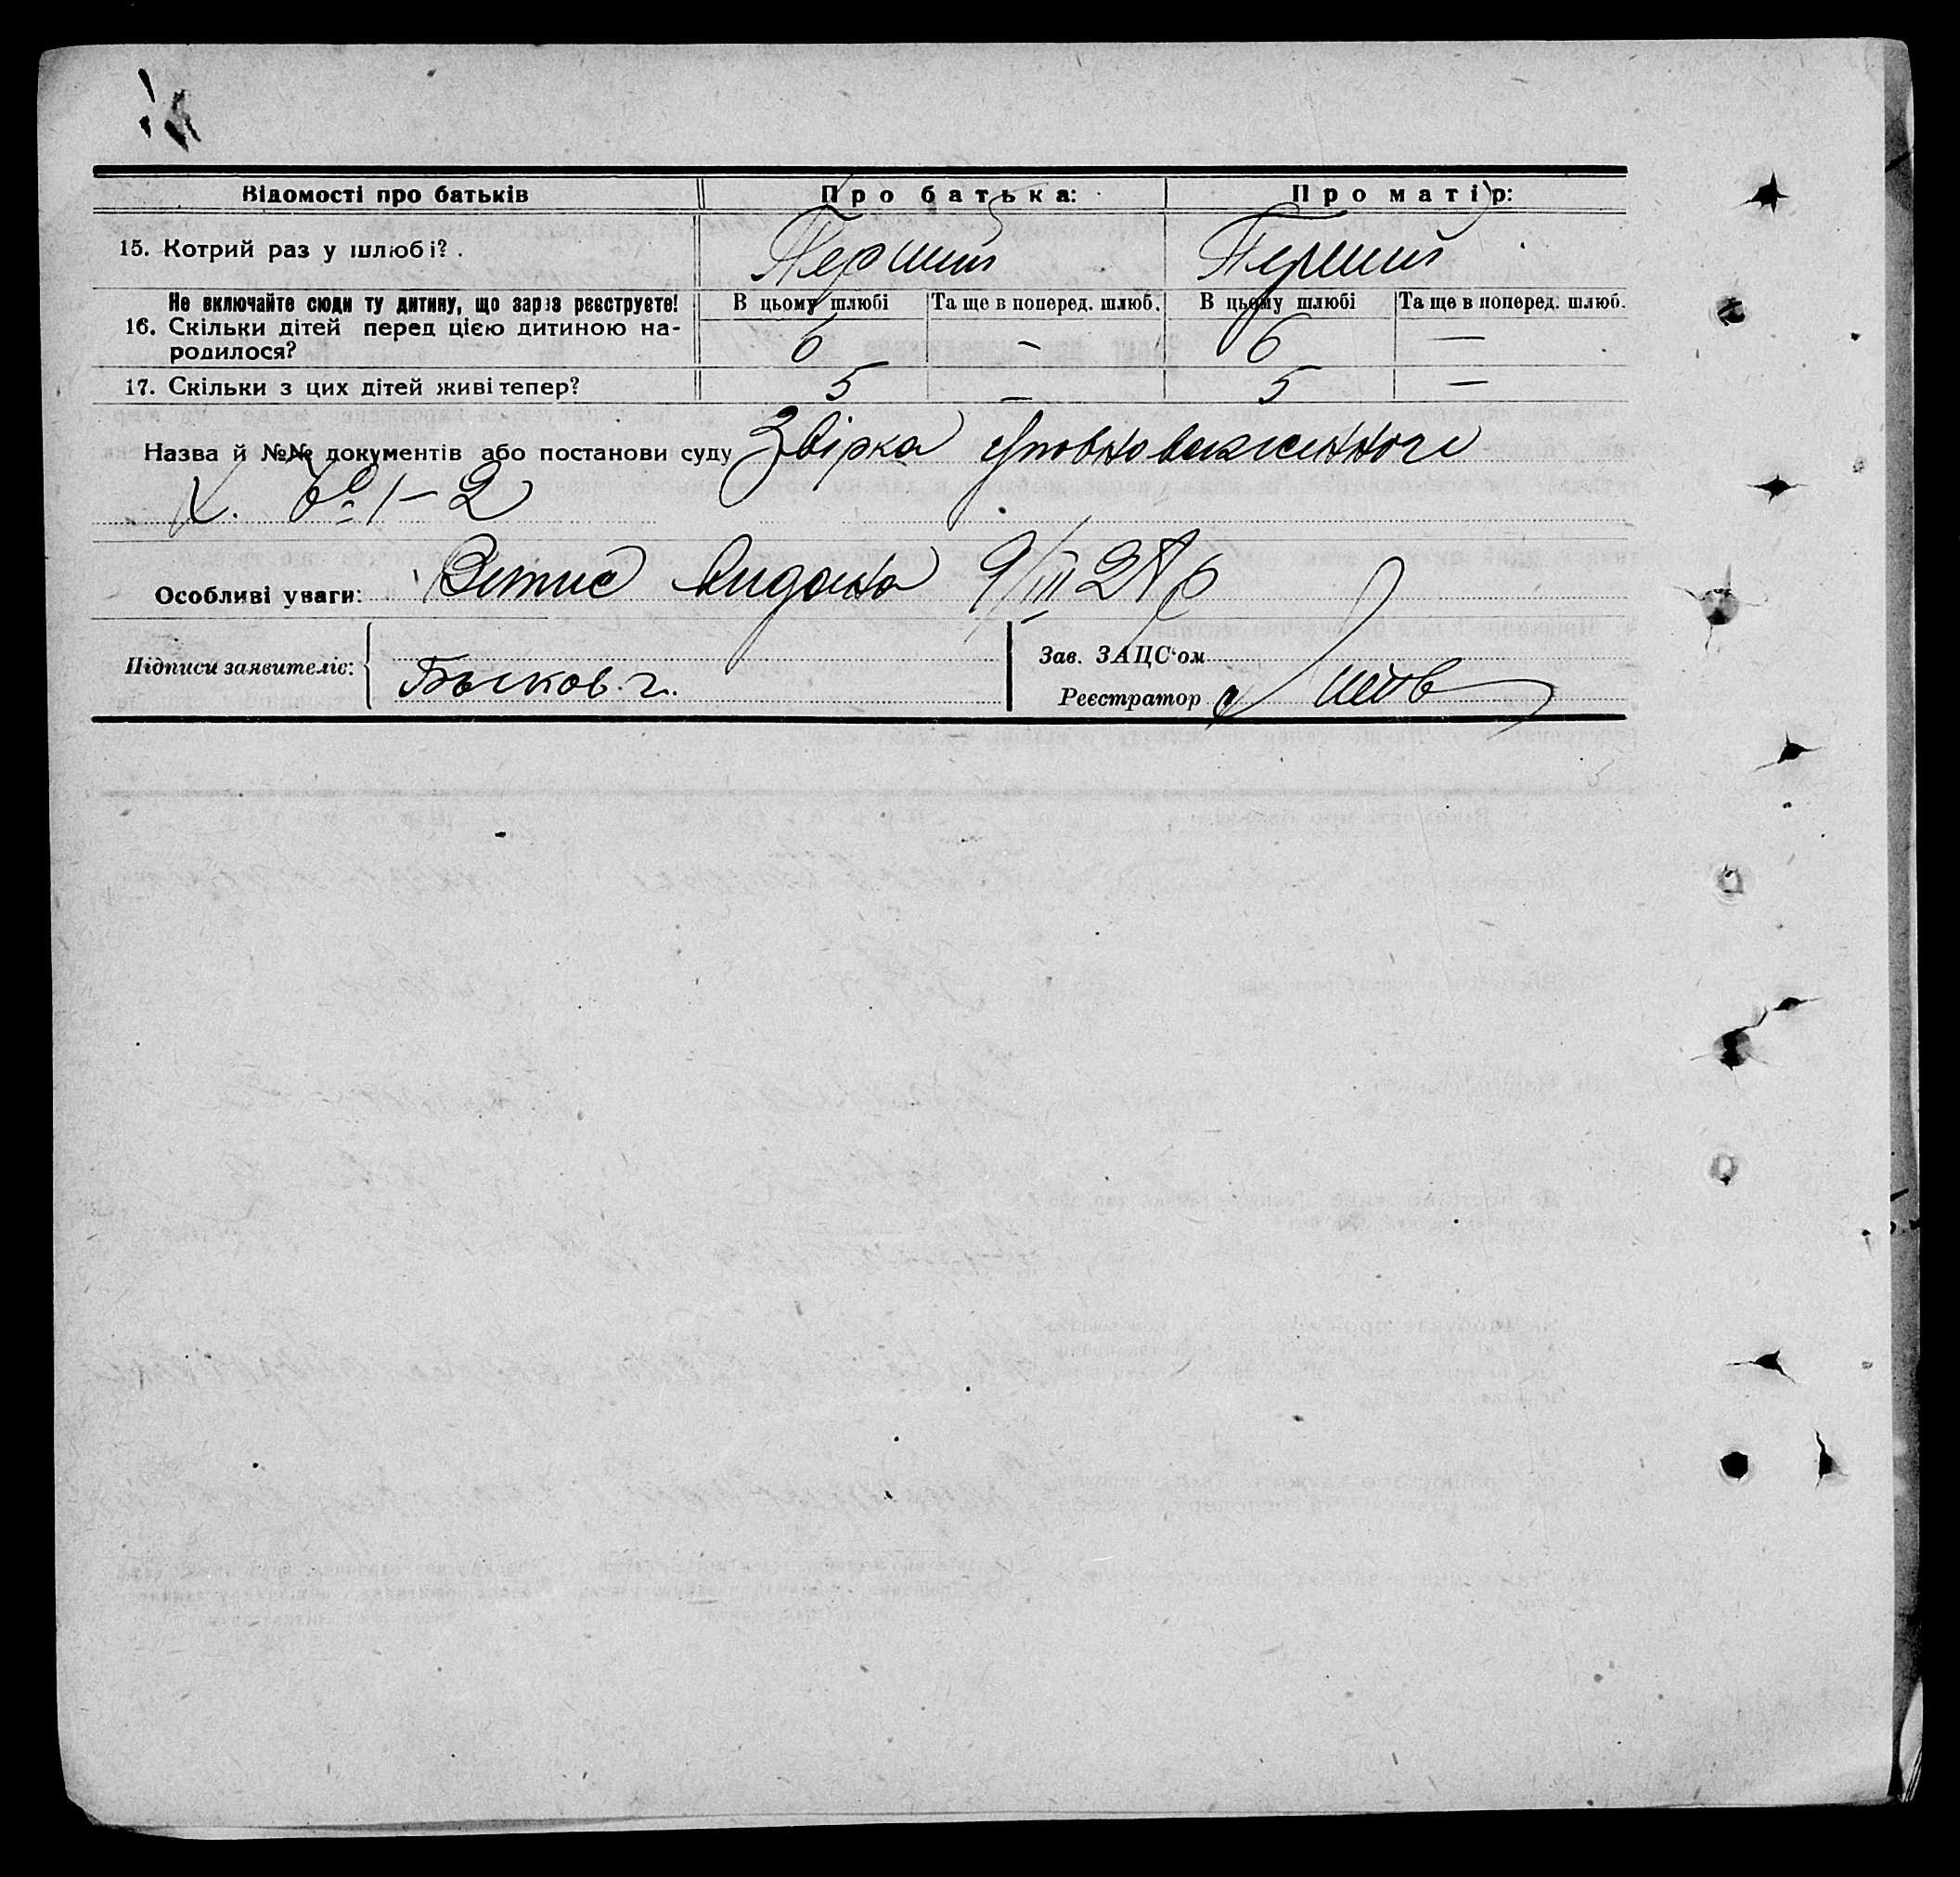 Відомості про батьків Про батька: Про матір:
15. Котрий раз у шлюбі? Перший Перший
Не включайте сюди ту дитину, що зараз реєструєте! В цьому шлюбі Та ще в поперед. шлюб. В цьому шлюбі Та ще в поперед. шлюб.
16. Скільки дітей перед цією дитиною на-
родилося? 6 — 6 —
17. Скільки з цих дітей живі тепер? 5 — 5 —
Назва й №№ документів або постанови суду Звірка уповноваженного
№ 1-2
Особливі уваги: Витис видано 9/III 28 р
Підписи заявителів: Зав. ЗАЦС'ом
Быков. г. Реєстратор